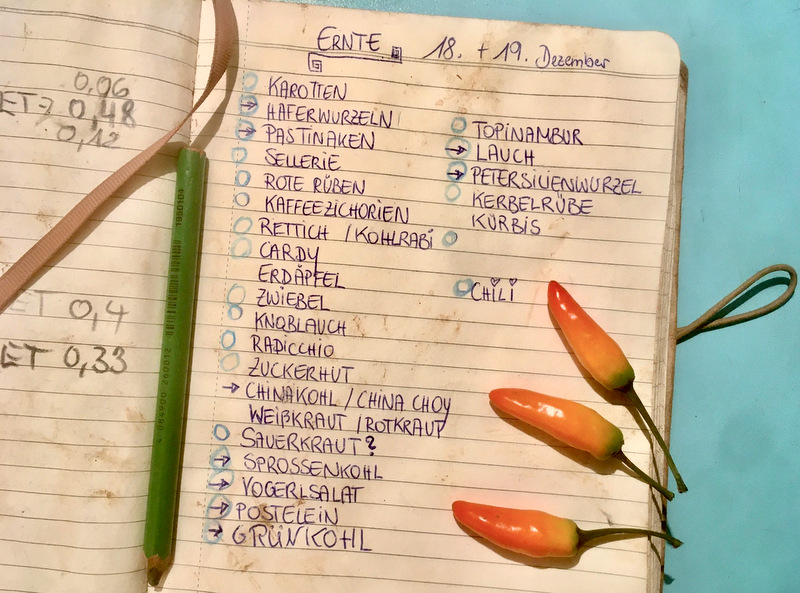 0,06
ET→ 0,48
0,12
ET 0,4
ET 0,33
ERNTE 18. + 19. Dezember
KAROTTEN
→ HAFERWURZELN
→ PASTINAKEN
SELLERIE
ROTE RÜBEN
KAFFEEZICHORIEN
RETTICH / KOHLRABI
CARDY
ERDÄPFEL
ZWIEBEL
KNOBLAUCH
RADICCHIO
ZUCKERHUT
→ CHINAKOHL / CHINA CHOY
WEIßKRAUT / ROTKRAUT
SAUERKRAUT?
→ SPROSSENKOHL
→ VOGERLSALAT
→ POSTELEIN
→ GRÜNKOHL
TOPINAMBUR
→ LAUCH
→ PETERSILIENWURZEL
KERBELRÜBE
KÜRBIS
CHILI
1990104
4 084900 260012